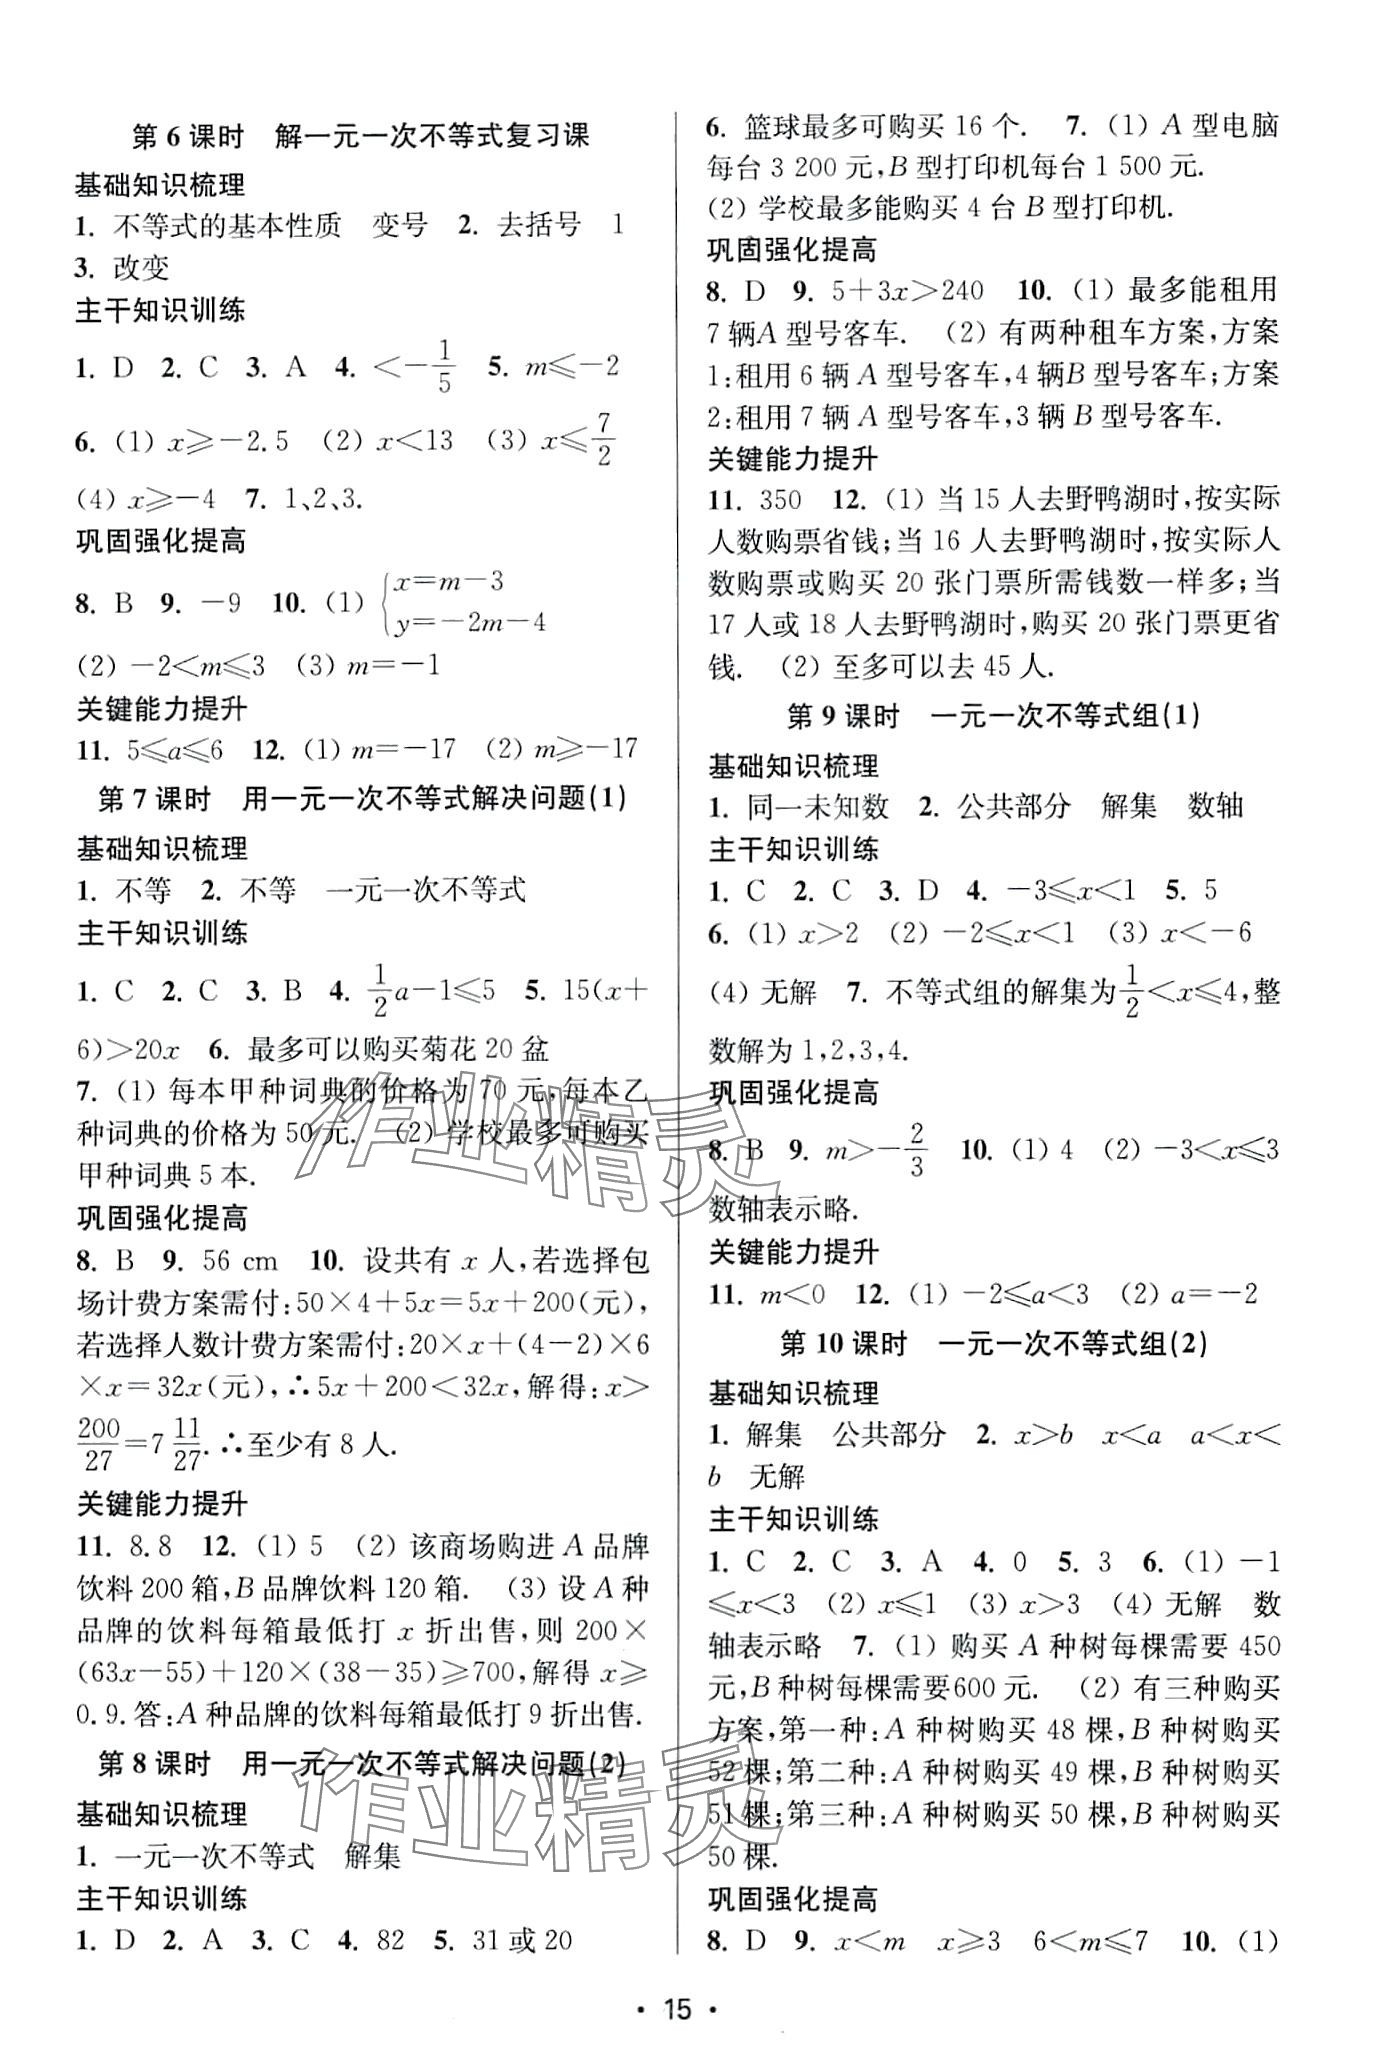 第 6 课时　解一元一次不等式复习课
基础知识梳理
1. 不等式的基本性质　变号　2. 去括号　1
3. 改变
主干知识训练
1. D　2. C　3. A　4. <-1/5　5. m≤-2
6. (1) x≥-2.5　(2) x<13　(3) x≤7/2
(4) x≥-4　7. 1、2、3.
巩固强化提高
8. B　9. -9　10. (1) {x=m-3
y=-2m-4
(2) -2<m≤3　(3) m=-1
关键能力提升
11. 5≤a≤6　12. (1) m=-17　(2) m≥-17
第 7 课时　用一元一次不等式解决问题(1)
基础知识梳理
1. 不等　2. 不等　一元一次不等式
主干知识训练
1. C　2. C　3. B　4. 1/2a-1≤5　5. 15(x+
6)>20x　6. 最多可以购买菊花 20 盆
7. (1) 每本甲种词典的价格为 70 元,每本乙
种词典的价格为 50 元.　(2) 学校最多可购买
甲种词典 5 本.
巩固强化提高
8. B　9. 56 cm　10. 设共有 x 人,若选择包
场计费方案需付:50×4+5x=5x+200(元),
若选择人数计费方案需付:20×x+(4-2)×6
×x=32x(元),∴5x+200<32x,解得:x>
200/27=7 11/27.∴至少有 8 人.
关键能力提升
11. 8.8　12. (1) 5　(2) 该商场购进 A 品牌
饮料 200 箱,B 品牌饮料 120 箱.　(3) 设 A 种
品牌的饮料每箱最低打 x 折出售,则 200×
(63x-55)+120×(38-35)≥700,解得 x≥
0.9.答:A 种品牌的饮料每箱最低打 9 折出售.
第 8 课时　用一元一次不等式解决问题(2)
基础知识梳理
1. 一元一次不等式　解集
主干知识训练
1. D　2. A　3. C　4. 82　5. 31 或 20
6. 篮球最多可购买 16 个.　7. (1) A 型电脑
每台 3 200 元,B 型打印机每台 1 500 元.
(2) 学校最多能购买 4 台 B 型打印机.
巩固强化提高
8. D　9. 5+3x>240　10. (1) 最多能租用
7 辆A 型号客车.　(2) 有两种租车方案,方案
1:租用 6 辆 A 型号客车,4 辆B 型号客车;方案
2:租用 7 辆 A 型号客车,3 辆 B 型号客车.
关键能力提升
11. 350　12. (1) 当 15 人去野鸭湖时,按实际
人数购票省钱;当 16 人去野鸭湖时,按实际人
数购票或购买 20 张门票所需钱数一样多;当
17 人或 18 人去野鸭湖时,购买 20 张门票更省
钱.　(2) 至多可以去 45 人.
第 9 课时　一元一次不等式组(1)
基础知识梳理
1. 同一未知数　2. 公共部分　解集　数轴
主干知识训练
1. C　2. C　3. D　4. -3≤x<1　5. 5
6. (1) x>2　(2) -2≤x<1　(3) x<-6
(4) 无解　7. 不等式组的解集为1/2<x≤4,整
数解为 1,2,3,4.
巩固强化提高
8. B　9. m>-2/3　10. (1) 4　(2) -3<x≤3
数轴表示略.
关键能力提升
11. m<0　12. (1) -2≤a<3　(2) a=-2
第 10 课时　一元一次不等式组(2)
基础知识梳理
1. 解集　公共部分　2. x>b　x<a　a<x<
b　无解
主干知识训练
1. C　2. C　3. A　4. 0　5. 3　6. (1) -1
≤x<3　(2) x≤1　(3) x>3　(4) 无解　数
轴表示略　7. (1) 购买 A 种树每棵需要 450
元,B 种树每棵需要600 元.　(2) 有三种购买
方案,第一种:A 种树购买 48 棵,B 种树购买
52 棵;第二种:A 种树购买 49 棵,B 种树购买
51 棵;第三种:A 种树购买 50 棵,B 种树购买
50 棵.
巩固强化提高
8. D　9. x<m　x≥3　6<m≤7　10. (1)
· 15 ·
作业精灵
作业精灵